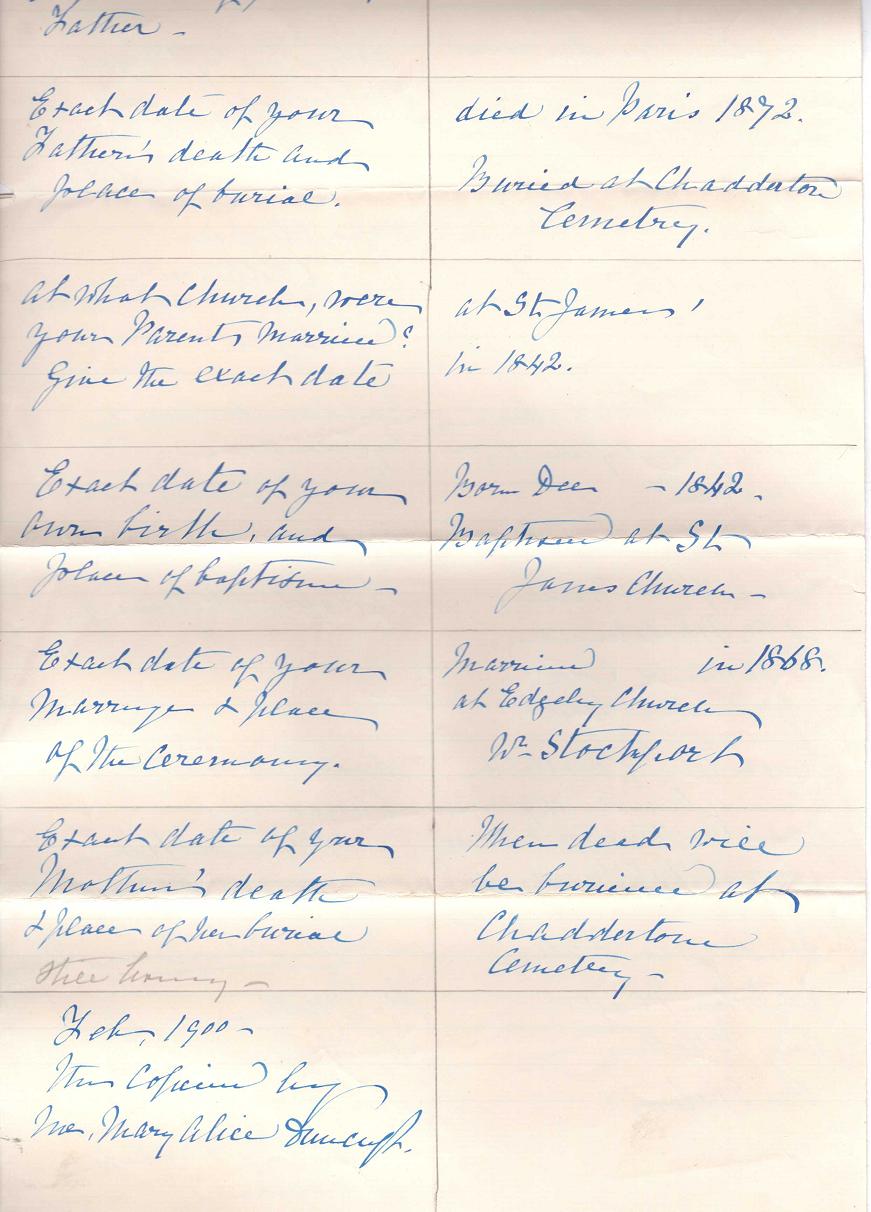 Father -
Exact date of your
Father's death and
place of burial.
died in Paris 1872.
Buried at Chadderton
Cemetrey.
at what Church, were
your Parents Married?
Give the exact date
at St James'
in 1842.
Exact date of your
own birth, and
place of baptism -
Born Dec - 1842.
Baptised at St
James Church -
Exact date of your
Marriage & place
of the Ceremony.
Married in 1868.
at Edgeley Church
Nr Stockport
Exact date of your
Mother's death
& place of her burial
still living -
When dead will
be buried at
Chadderton
Cemetery -
Feb. 1900 -
This Copied by
me, Mary Alice